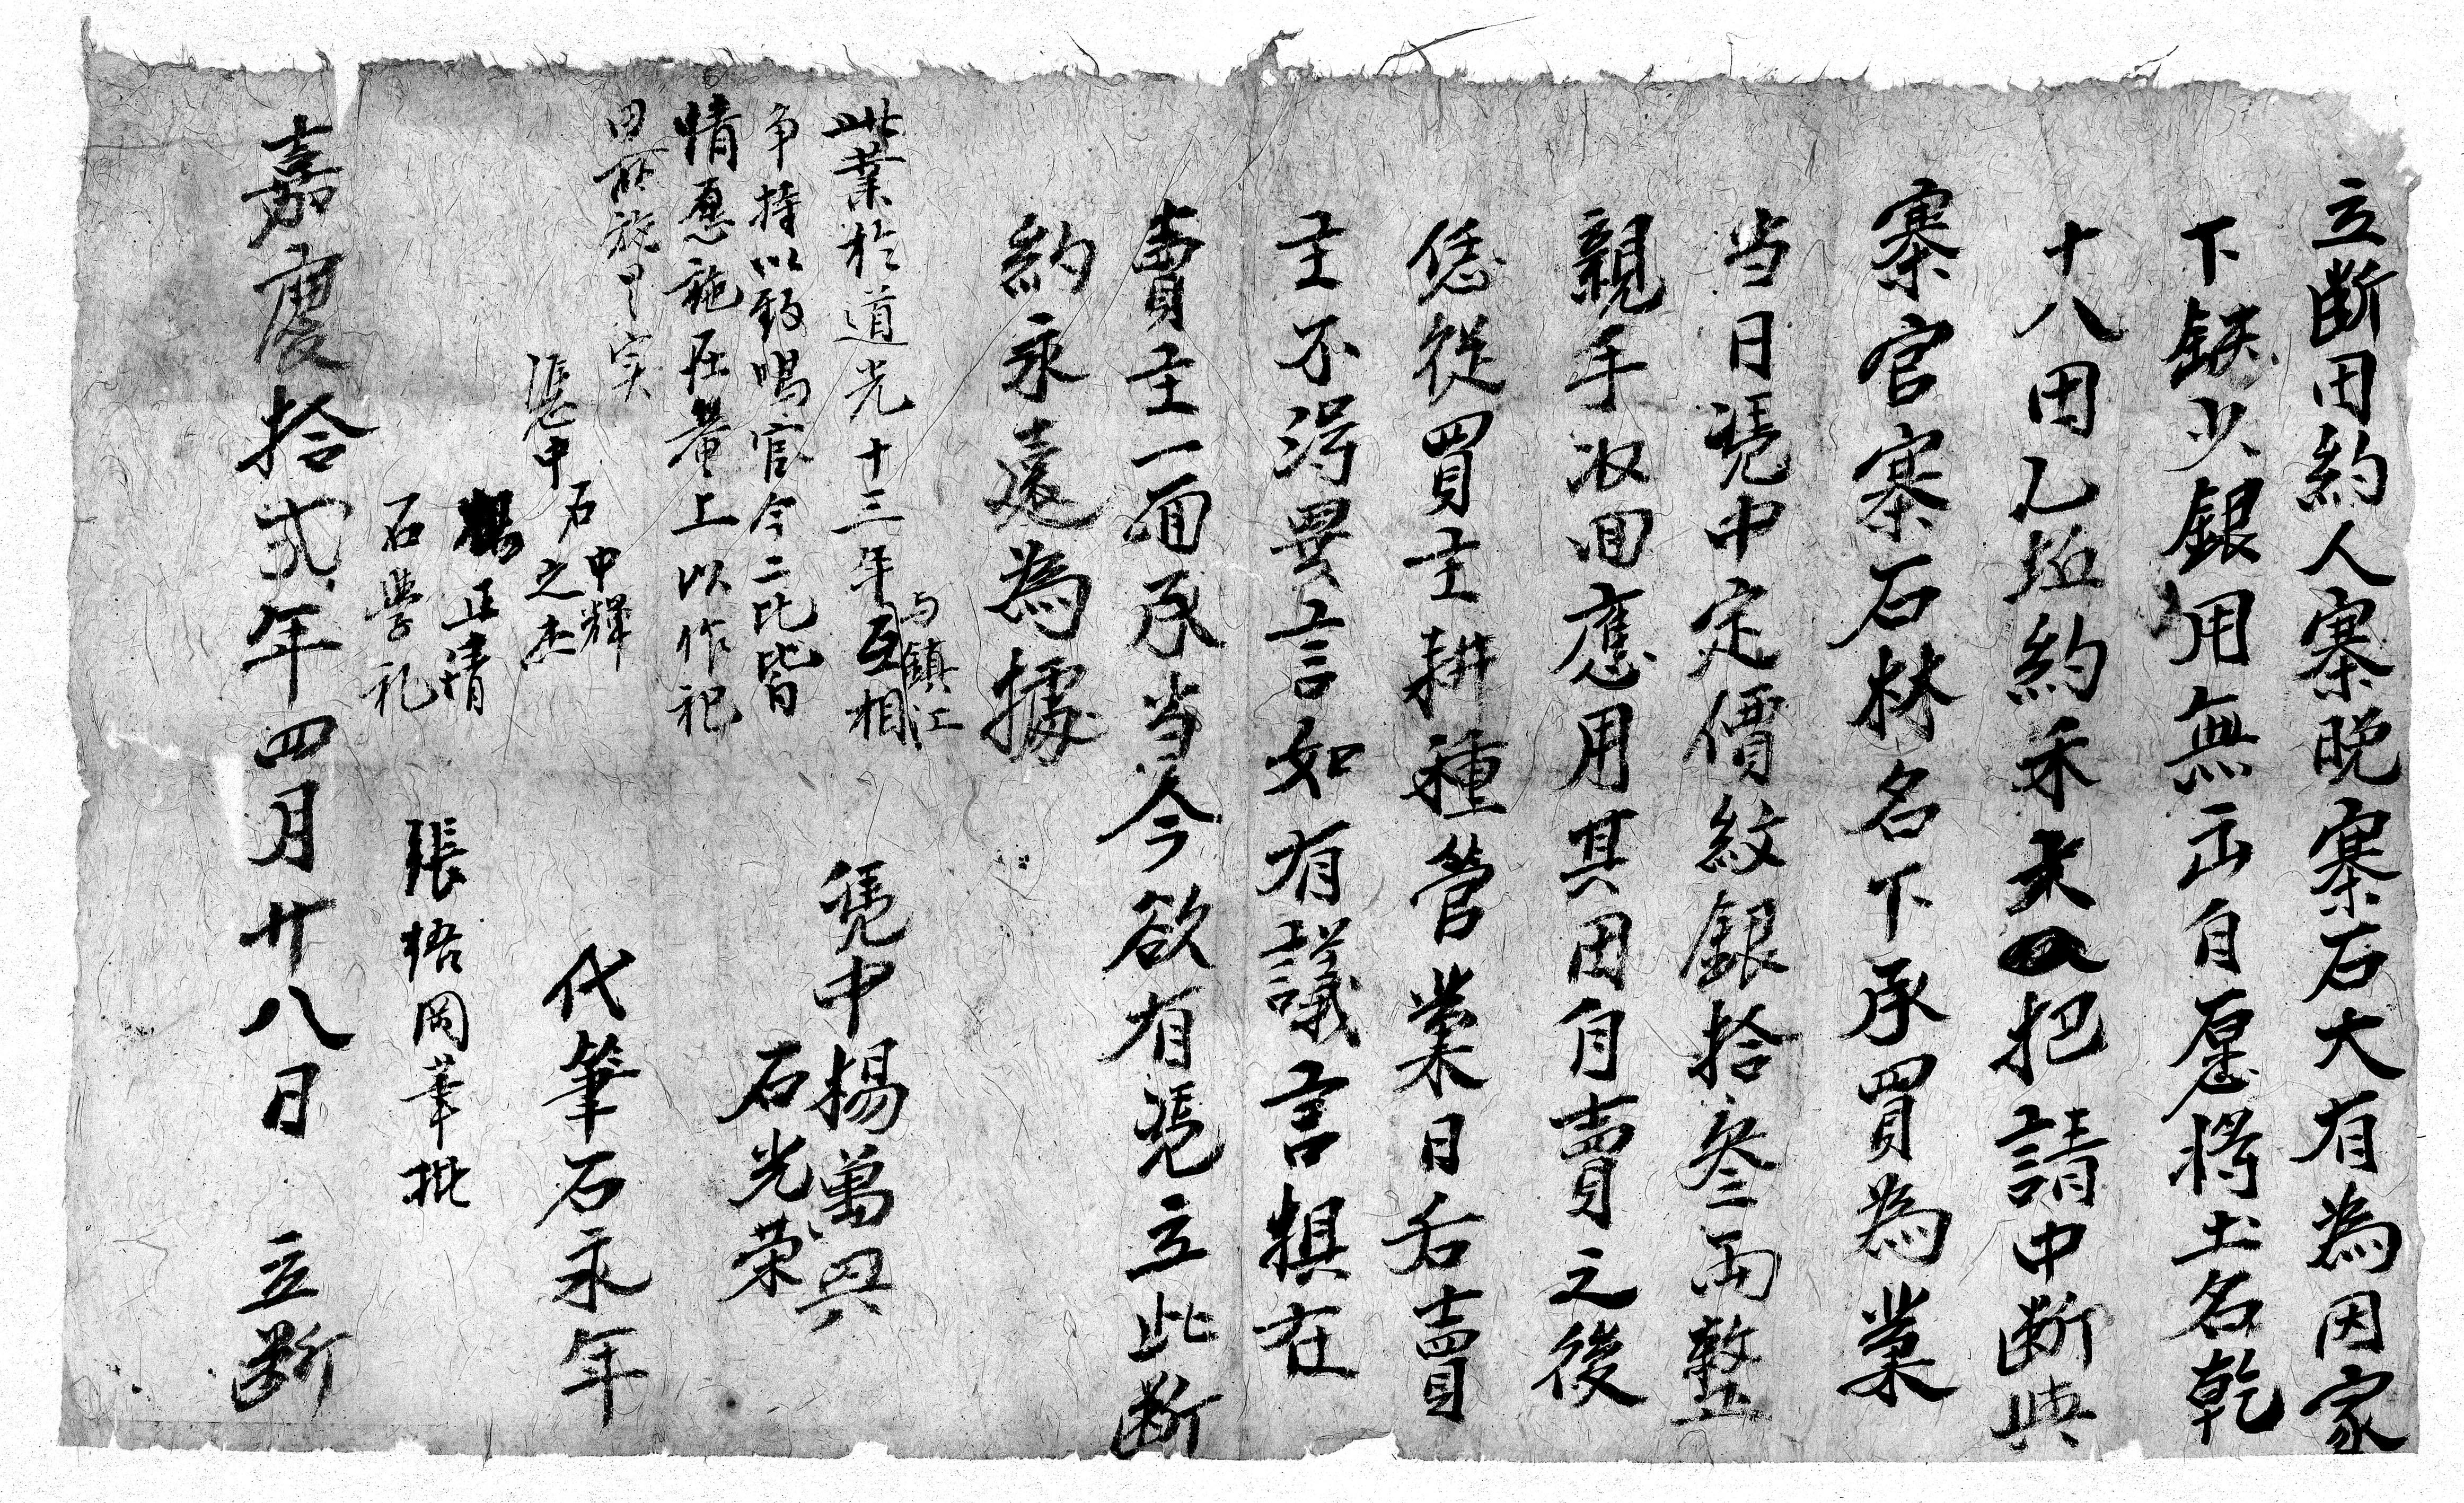 立断田約人寨晚寨石大有為因家
下缺少銀用無出自愿将土名乾
十八田乙坵約禾 把請中断與
寨官寨石林名下承買為業
当日凴中定價紋銀拾叁両整
親手収回應用其田自賣之後
恁從買主耕種管業日后賣
主不淂異言如有議言俱在
賣主一面承当今欲有凴立此断
約永遠為據
凴中楊萬興
石光荣
代筆石永年
此業於道光十三年与鎮江互相
争持以致鳴官今二比皆
情愿施在 上以作祀
田 施是实
憑中石中輝
之杰
楊正清
石學礼
張梧岡筆批
嘉慶拾弍年四月廿八日 立断